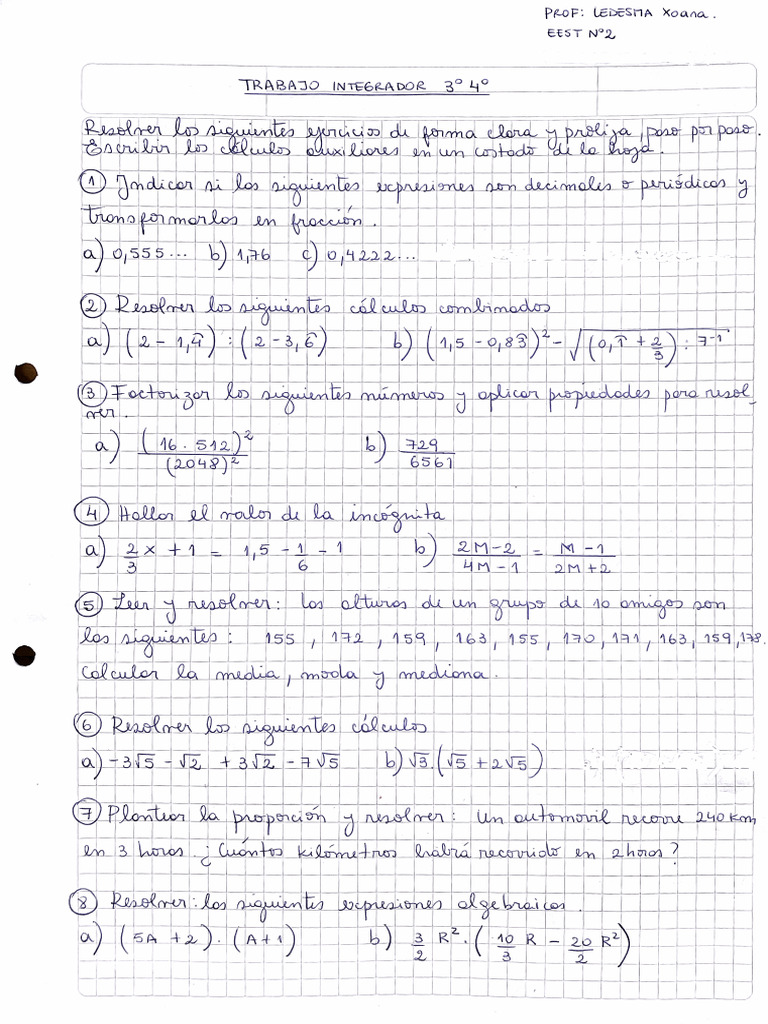 PROF: LEDESMA Xoana.
EEST N°2
TRABAJO INTEGRADOR 3° 4°
Resolver los siguientes ejercicios de forma clara y prolija, paso por paso.
Escribir los cálculos auxiliares en un costado de la hoja.
① Indicar si las siguientes expresiones son decimales o periódicas y
transformarlas en fracción.
a) 0,555... b) 1,76 c) 0,4222...
② Resolver los siguientes cálculos combinados
a) (2 - 1,4̂) : (2 - 3,6̂) b) (1,5 - 0,83̂)² - √((0,1̂ + 2/3) : 7⁻¹)
③ Factorizar los siguientes números y aplicar propiedades para resol-
ver.
a) (16 . 512)² / (2048)² b) 729 / 6561
④ Hallar el valor de la incógnita
a) 2/3 x + 1 = 1,5 - 1/6 - 1 b) (2M-2)/(4M-1) = (M-1)/(2M+2)
⑤ Leer y resolver: las alturas de un grupo de 10 amigos son
las siguientes: 155, 172, 159, 163, 155, 170, 171, 163, 159, 178.
Calcular la media, moda y mediana.
⑥ Resolver los siguientes cálculos
a) -3√5 - √2 + 3√2 - 7√5 b) √3.(√5 + 2√5)
⑦ Plantear la proporción y resolver: Un automovil recorre 240 Km
en 3 horas ¿Cuántos kilómetros habrá recorrido en 2 horas?
⑧ Resolver: las siguientes expresiones algebraicas.
a) (5A + 2) . (A + 1) b) 3/2 R² . (10/3 R - 20/2 R²)